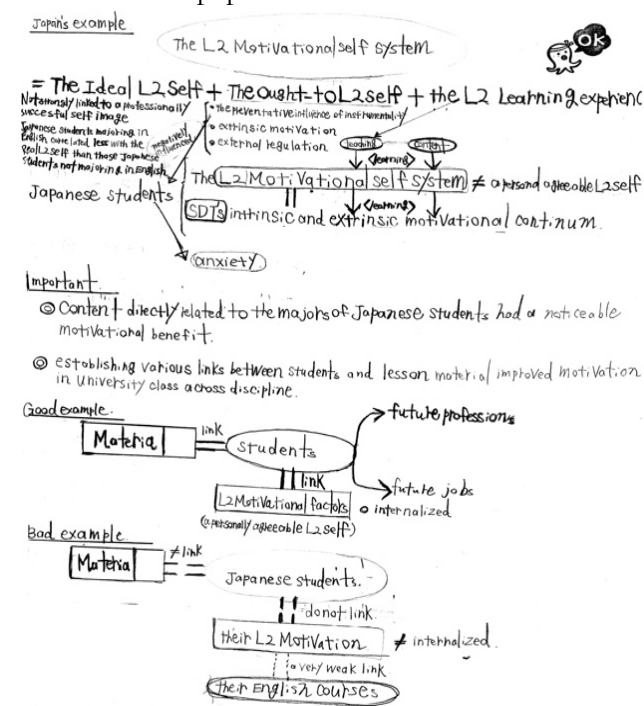 Japan's example
OK
The L2 Motivational self system
= The Ideal L2 Self + The ought-to L2 self + the L2 Learning experienc
Not strongly linked to a professionally
succesful self image
Japanese students majoring in
English correlated less with the
Real L2 self than those Japanese
students not majoring in English
negatively
influenced
• the preventative influence of instrumentality
• extrinsic motivation
• external regulation
teaching
content
<learning>
The L2 Motivational self system ≠ a personal agreeable L2 self
Japanese students
<learning>
SDT's intrinsic and extrinsic motivational continum.
anxiety
Important
◎ Content directly related to the majors of Japanese students had a noticeable
motivational benefit.
◎ establishing various links between students and lesson material improved motivation
in University class across discipline.
Good example.
future professions
Materia
link
students
link
future jobs
L2 Motivational factors
○ internalized
(a personally agreeable L2 self)
Bad example
≠ link
Materia
Japanese students.
do not link.
their L2 Motivation ≠ internalized.
a very weak link
their English courses